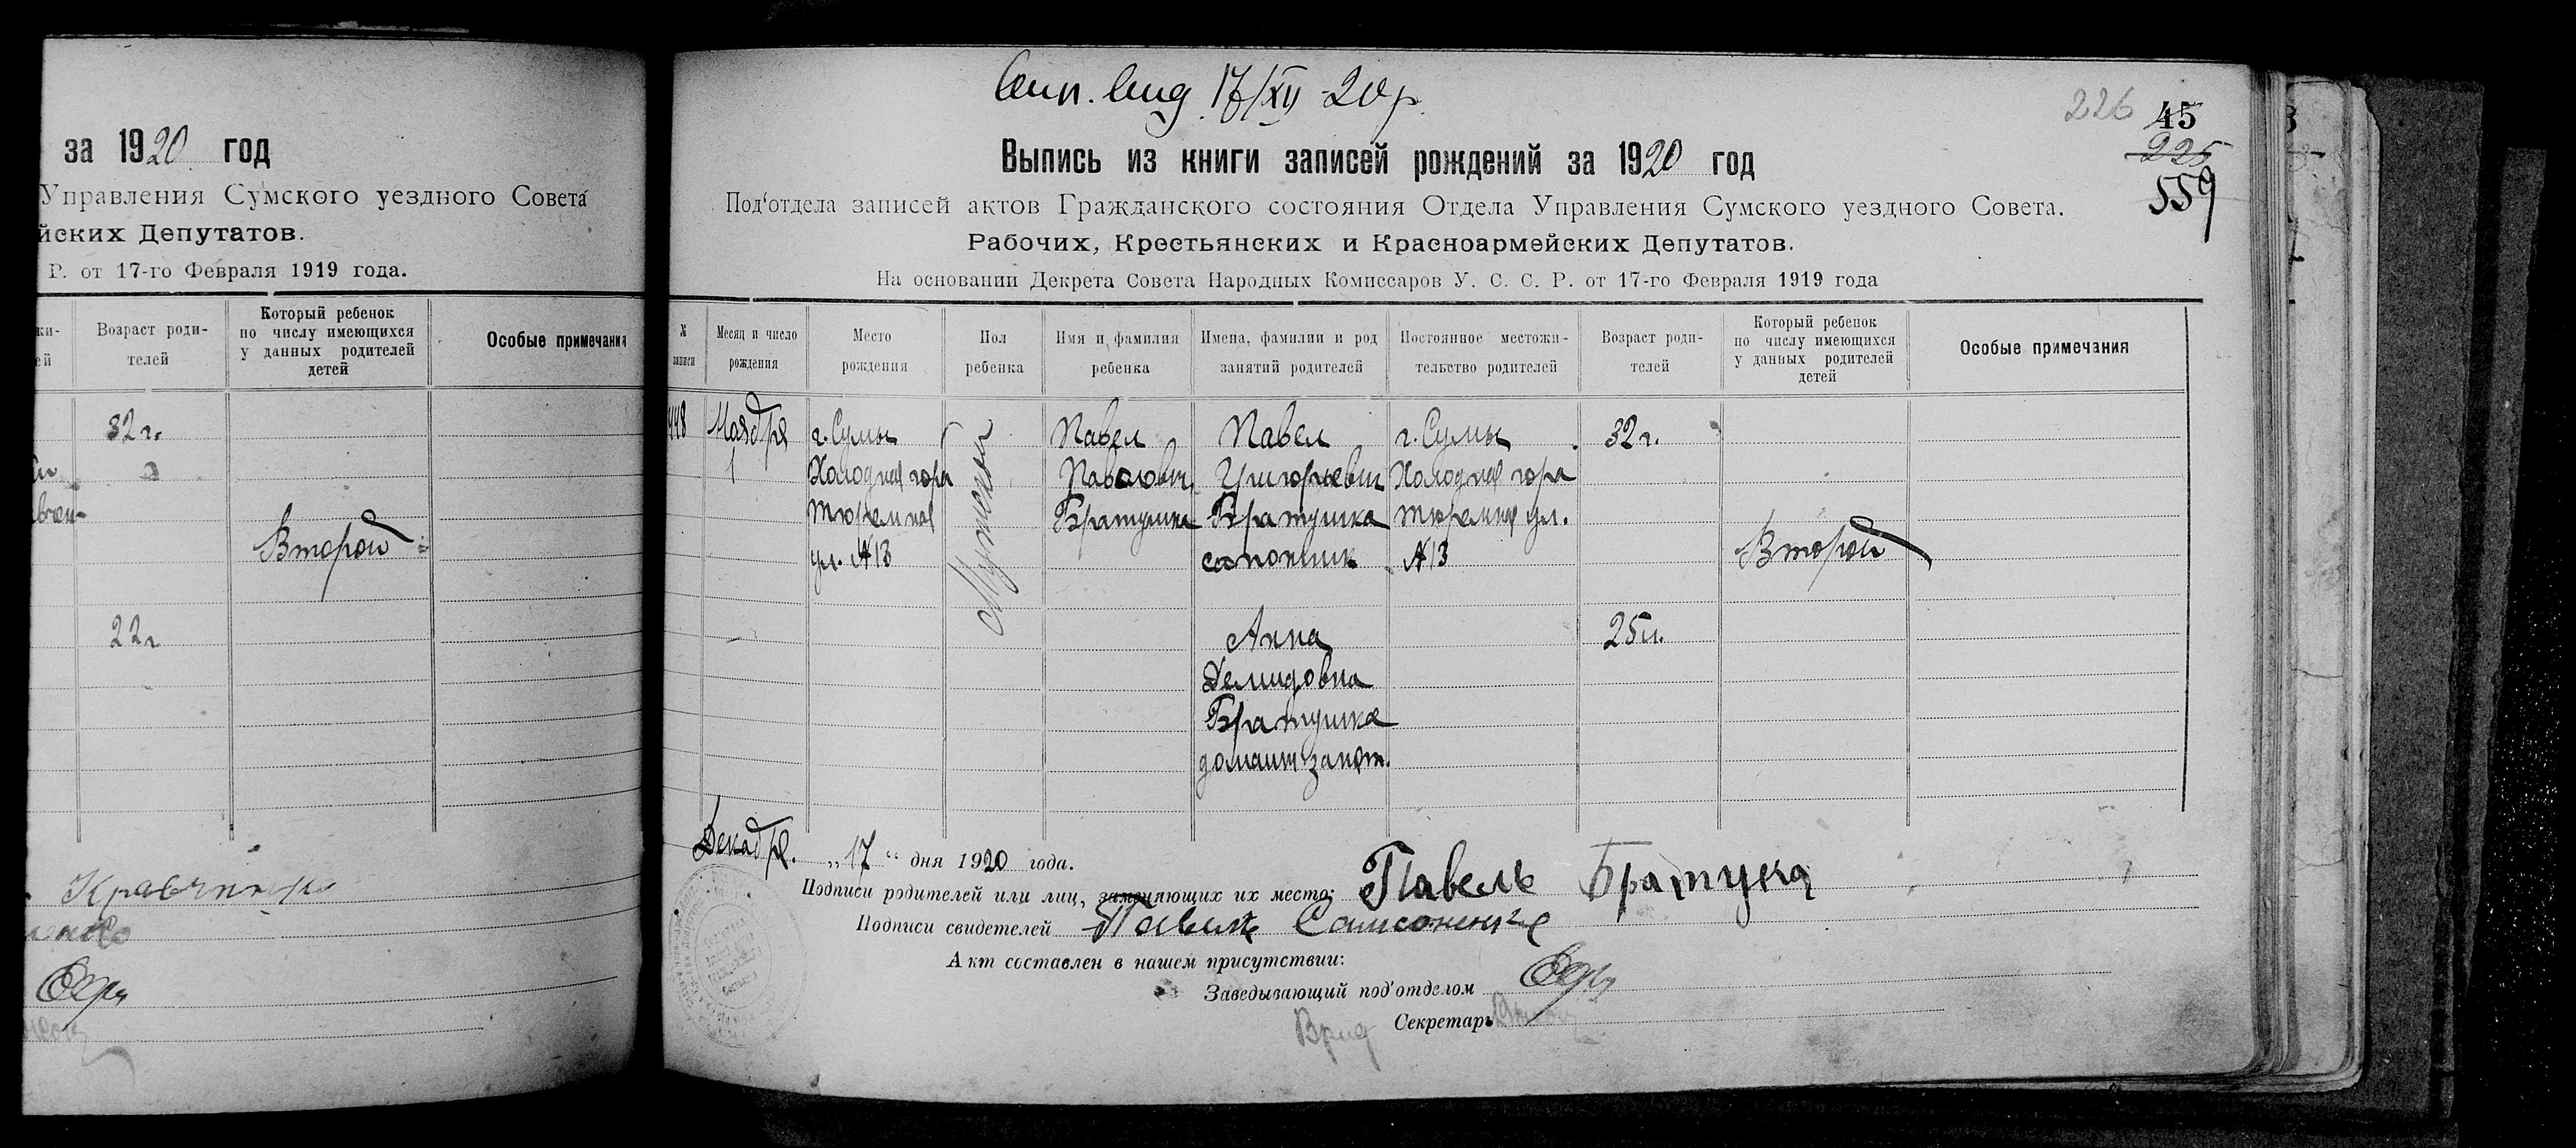 за 1920 год
Управления Сумского уездного Совета
йских Депутатов.
Р. от 17-го Февраля 1919 года.
Возраст роди-
телей
Который ребенок
по числу имеющихся
у данных родителей
детей
Особые примечания
32 г.
Второй
22 г
17/XII 20 р.
226
45
225
559
Выпись из книги записей рождений за 1920 год
Под'отдела записей актов Гражданского состояния Отдела Управления Сумского уездного Совета.
Рабочих, Крестьянских и Красноармейских Депутатов.
На основании Декрета Совета Народных Комиссаров У. С. С. Р. от 17-го Февраля 1919 года
№
записи
Месяц и число
рождения
Место
рождения
Пол
ребенка
Имя и фамилия
ребенка
Имена, фамилии и род
занятий родителей
Постоянное местожи-
тельство родителей
Возраст роди-
телей
Который ребенок
по числу имеющихся
у данных родителей
детей
Особые примечания
Ноября
1
г. Сумы
Холодная гора
тюремная
ул. №13
Мужской
Павел
Павлович
Братушка
Павел
Григорьевич
Братушка
сапожник
Анна
Демидовна
Братушка
домашн. занят.
г. Сумы
Холодная гора
тюремная ул.
№13
32 г.
25 л.
Второй
Декабря. „17“ дня 1920 года.
Подписи родителей или лиц, заменяющих их место: Павель Братушка
Подписи свидетелей Самсоненко
Акт составлен в нашем присутствии:
Заведывающий под'отделом
Врид Секретарь